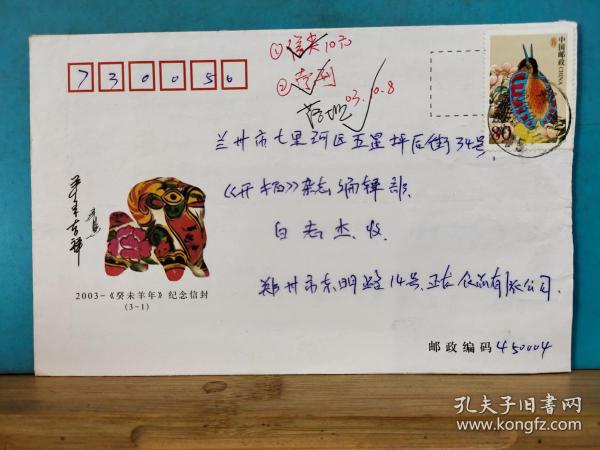 730050
①信尖10元
②变列
03.10.8
中国邮政
CHINA
80
兰州市七里河区五星坪后街34号,
《开拓》杂志编辑部.
白志杰 收
郑州市东明路14号.正在食品有限公司.
羊年吉祥
2003-《癸未羊年》纪念信封
(3-1)
邮政编码 450004
孔夫子旧书网
www.kongfz.com